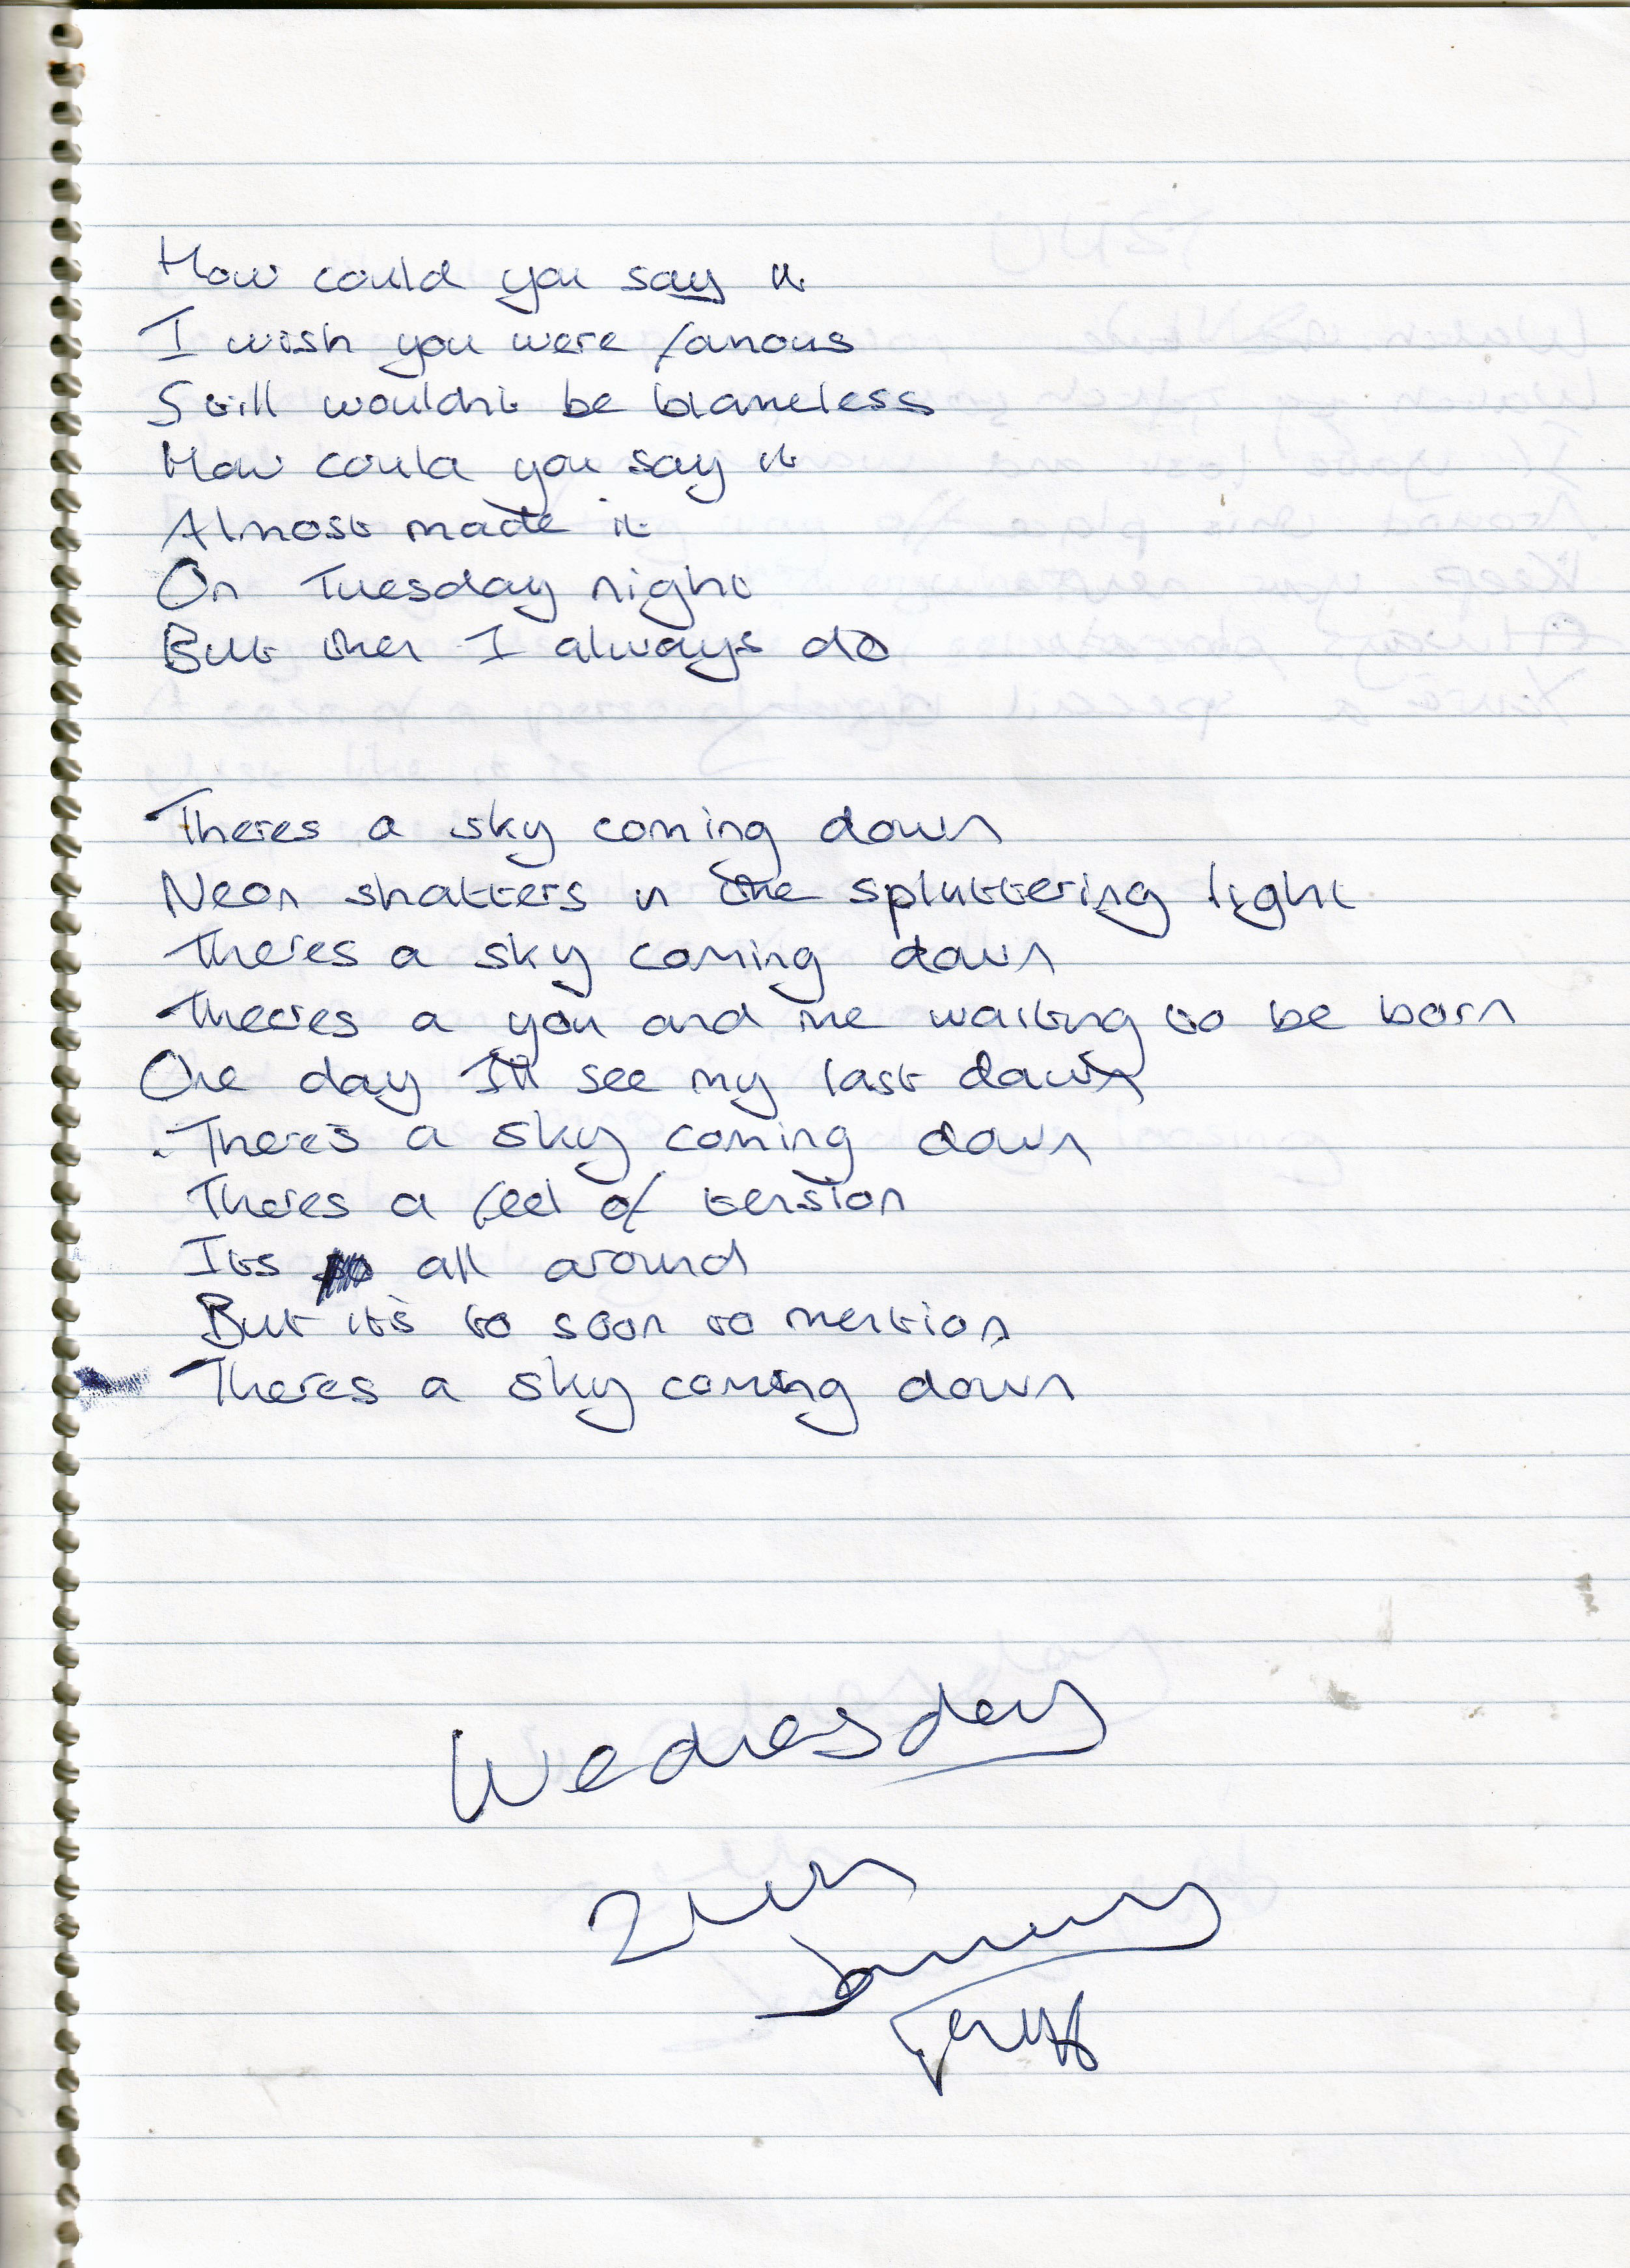 How could you say it
I wish you were famous
Still wouldn't be blameless
How could you say it
Almost made it
On Tuesday night
But then I always do
Theres a sky coming down
Neon shatters in the spluttering light
There's a sky coming down
Theres a you and me waiting to be born
One day I'll see my last dawn
There's a sky coming down
Theres a feel of tension
Its all around
But it's to soon to mention
Theres a sky coming down
Wednesday
January